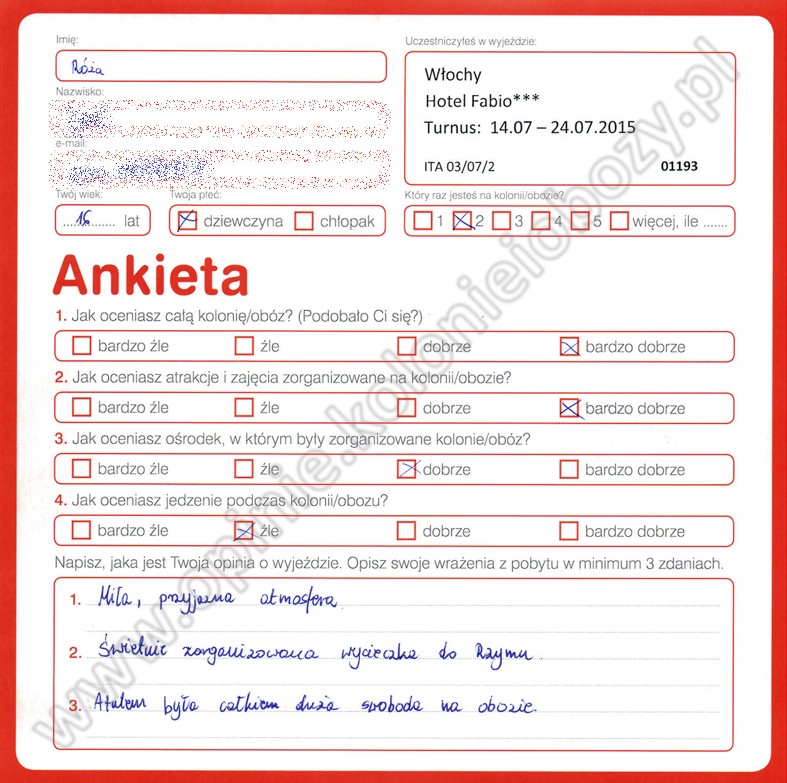 Imię:
Róża
Nazwisko:
e-mail:
Twój wiek:
16 lat
Twoja płeć:
dziewczyna chłopak
Uczestniczyłeś w wyjeździe:
Włochy
Hotel Fabio***
Turnus: 14.07 – 24.07.2015
ITA 03/07/2 01193
Który raz jesteś na kolonii/obozie?
1 2 3 4 5 więcej, ile .......
Ankieta
1. Jak oceniasz całą kolonię/obóz? (Podobało Ci się?)
bardzo źle źle dobrze bardzo dobrze
2. Jak oceniasz atrakcje i zajęcia zorganizowane na kolonii/obozie?
bardzo źle źle dobrze bardzo dobrze
3. Jak oceniasz ośrodek, w którym były zorganizowane kolonie/obóz?
bardzo źle źle dobrze bardzo dobrze
4. Jak oceniasz jedzenie podczas kolonii/obozu?
bardzo źle źle dobrze bardzo dobrze
Napisz, jaka jest Twoja opinia o wyjeździe. Opisz swoje wrażenia z pobytu w minimum 3 zdaniach.
1. Miła, przyjazna atmosfera.
2. Świetnie zorganizowana wycieczka do Rzymu.
3. Atutem była całkiem duża swoboda na obozie.
www.opinie.kolonieiobozy.pl